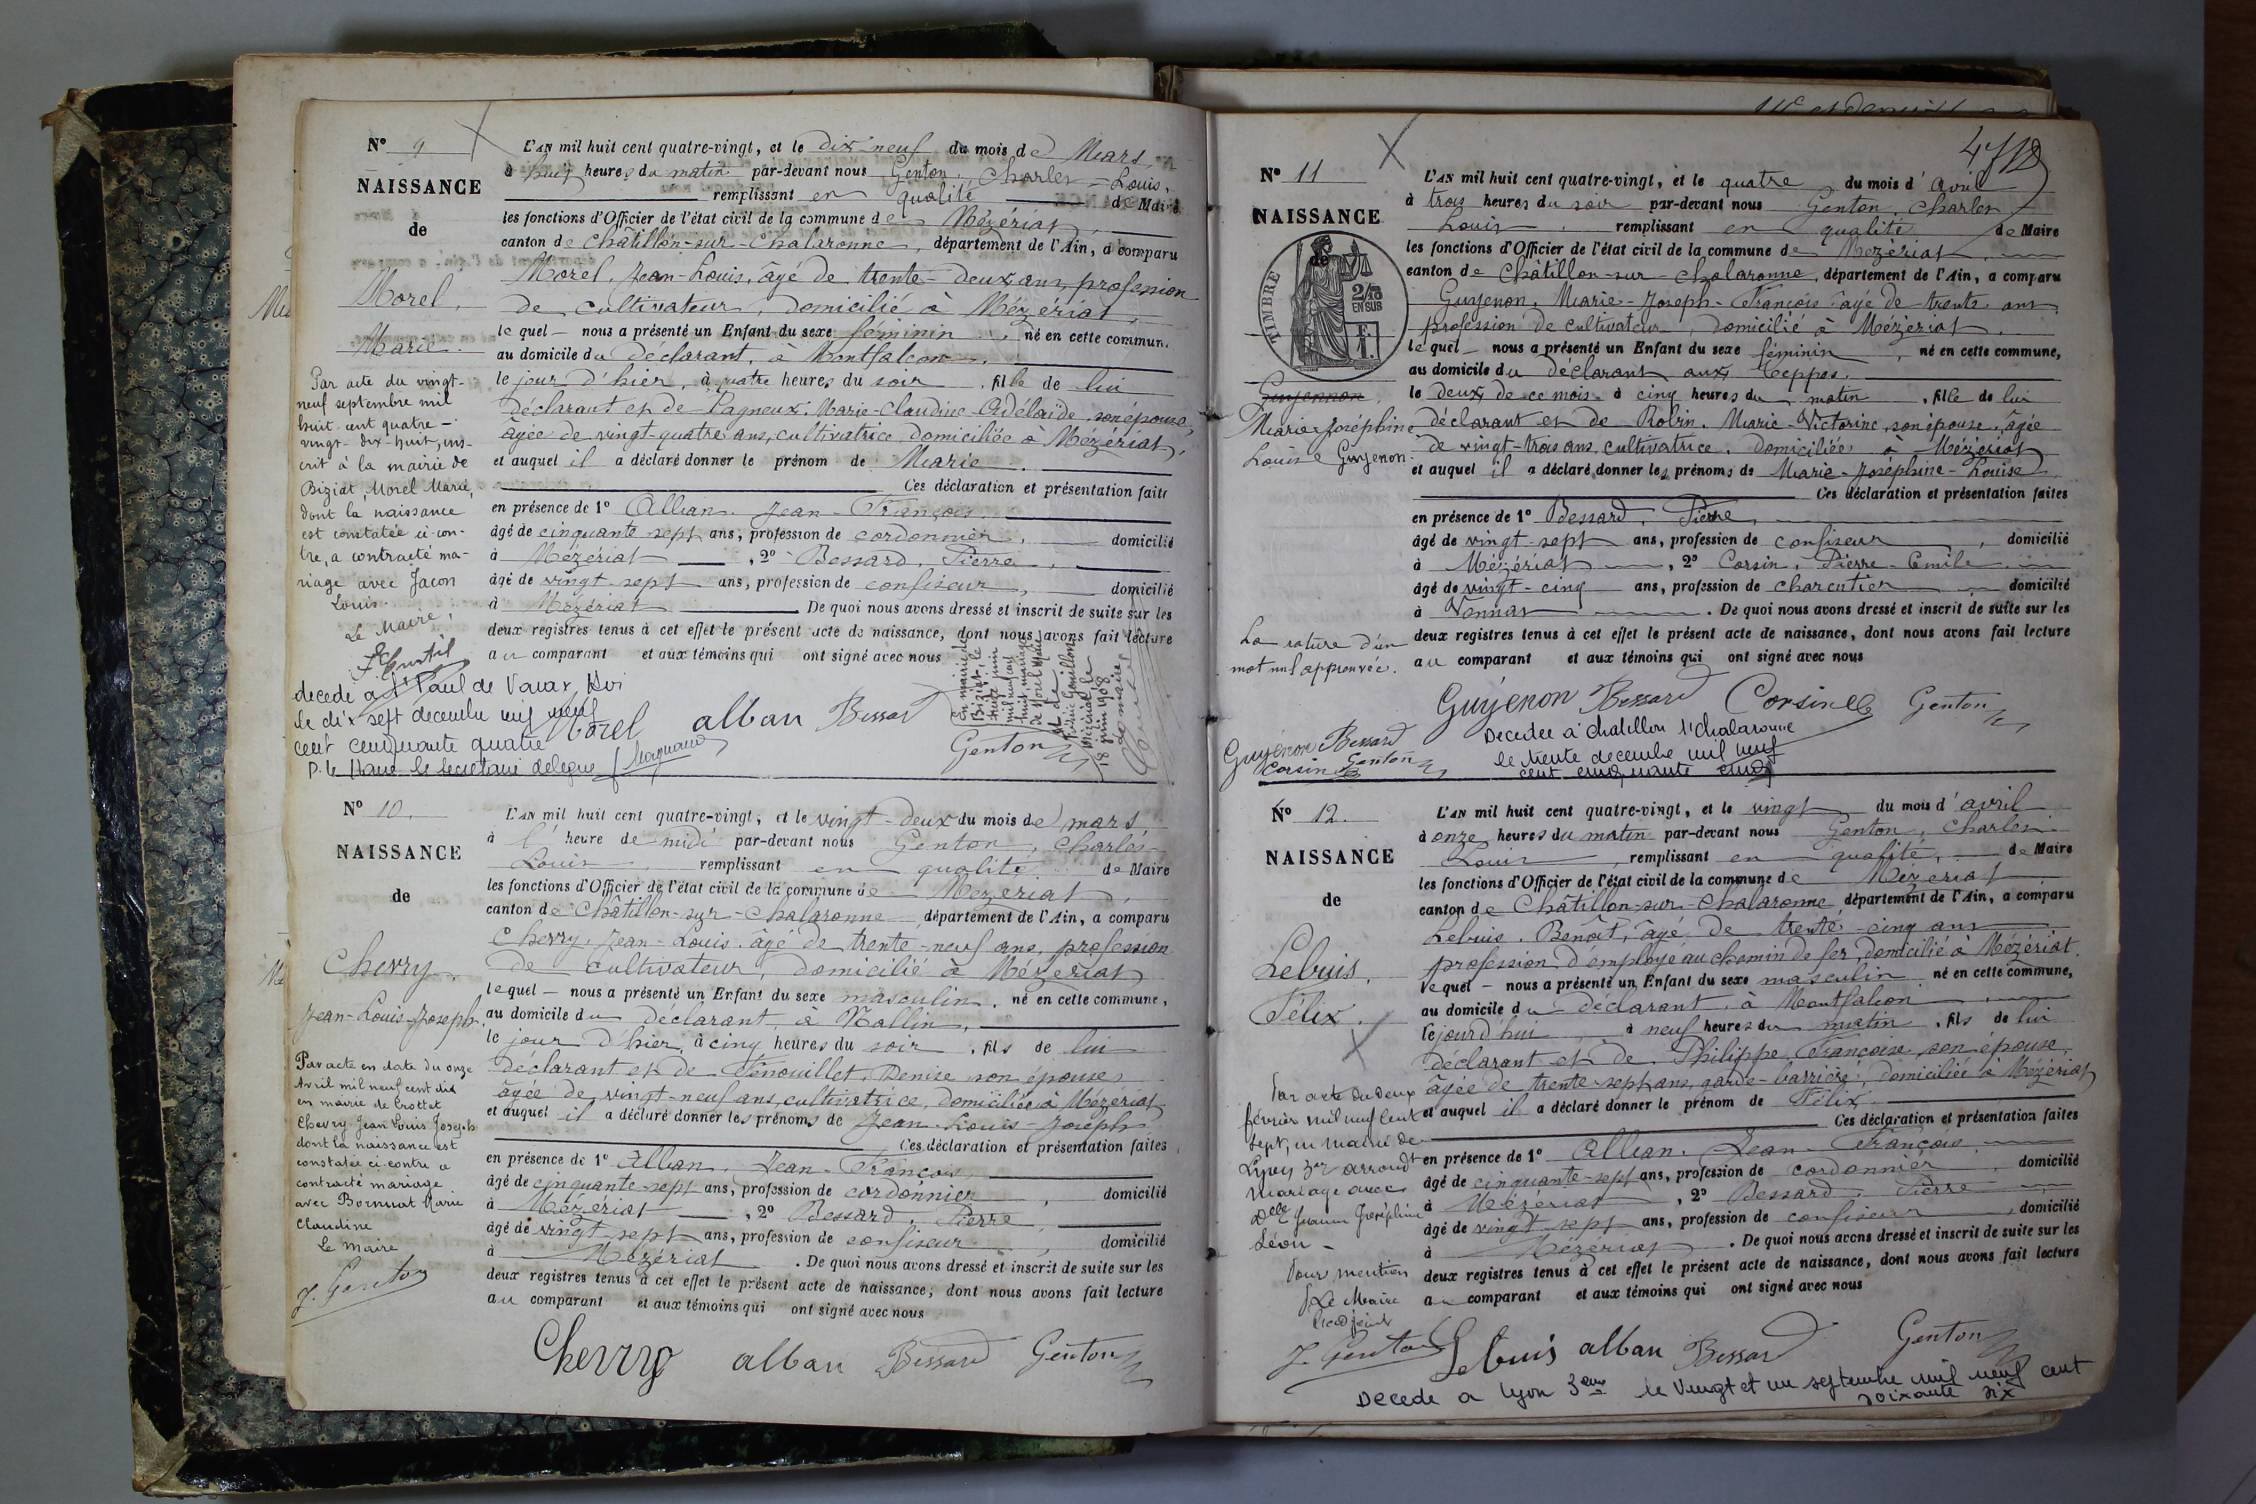 N° 9
NAISSANCE
de
Morel,
Marie.
Par acte du vingt-
neuf septembre mil
huit cent quatre-
vingt-dix-huit, ins-
crit à la mairie de
Biziat, Morel Marie,
dont la naissance
est constatée ci-con-
tre, a contracté ma-
riage avec Jacon
Louis.
Le Maire,
decede a St Paul de Varax
le dix sept decembre mil neuf
cent cinquante quatre
P. le Maire le Secretaire delegue
L'AN mil huit cent quatre-vingt, et le dix-neuf du mois de Mars
à huit heures du matin par-devant nous Genton, Charles-Louis,
remplissant en qualité de Maire
les fonctions d'Officier de l'état civil de la commune de Mézériat,
canton de Châtillon-sur-Chalaronne, département de l'Ain, a comparu
Morel, Jean-Louis, âgé de trente-deux ans, profession
de cultivateur, domicilié à Mézériat,
lequel nous a présenté un Enfant du sexe féminin, né en cette commun.
au domicile du déclarant, à Montfalcon,
le jour d'hier, à quatre heures du soir, fille de lui
déclarant et de Pagneux, Marie-Claudine-Adélaïde, son épouse,
âgée de vingt-quatre ans, cultivatrice, domiciliée à Mézériat,
et auquel il a déclaré donner le prénom de Marie.
Ces déclaration et présentation faites
en présence de 1° Alban, Jean-François
âgé de cinquante-sept ans, profession de cordonnier, domicilié
à Mézériat, 2° Bessard, Pierre,
âgé de vingt-sept ans, profession de confiseur, domicilié
à Mézériat De quoi nous avons dressé et inscrit de suite sur les
deux registres tenus à cet effet le présent acte de naissance, dont nous avons fait lecture
au comparant et aux témoins qui ont signé avec nous
Morel alban Bessard Genton
En mairie de
Biziat, le
18 juin 1908
Le maire
N° 10.
NAISSANCE
de
Chevry,
Jean-Louis-Joseph.
Par acte en date du onze
Avril mil neuf cent dix
en mairie de Crottet
Chevry Jean Louis Joseph
dont la naissance est
constatée ci-contre a
contracté mariage
avec Bornuat Marie
Claudine
Le Maire
J. Genton
L'AN mil huit cent quatre-vingt, et le vingt-deux du mois de mars
à l'heure de midi par-devant nous Genton, Charles-
Louis remplissant en qualité de Maire
les fonctions d'Officier de l'état civil de la commune de Mézériat,
canton de Châtillon-sur-Chalaronne département de l'Ain, a comparu
Chevry, Jean-Louis, âgé de trente-neuf ans, profession
de cultivateur, domicilié à Mézériat
lequel nous a présenté un Enfant du sexe masculin, né en cette commune,
au domicile du déclarant, à Vallin,
le jour d'hier, à cinq heures du soir, fils de lui
déclarant et de Fenouillet, Denise son épouse,
âgée de vingt-neuf ans, cultivatrice, domiciliée à Mézériat
et auquel il a déclaré donner les prénoms de Jean-Louis-Joseph
Ces déclaration et présentation faites
en présence de 1° Alban, Jean-François,
âgé de cinquante-sept ans, profession de cordonnier, domicilié
à Mézériat, 2° Bessard, Pierre,
âgé de vingt-sept ans, profession de confiseur, domicilié
à Mézériat. De quoi nous avons dressé et inscrit de suite sur les
deux registres tenus à cet effet le présent acte de naissance, dont nous avons fait lecture
au comparant et aux témoins qui ont signé avec nous
Chevry alban Bessard Genton
N° 11
NAISSANCE
de
TIMBRE
2/10
EN SUS
Guyennon
Marie-Joséphine
Louise Guyenon.
La rature d'un
mot nul approuvée.
Guyenon Bessard
Corsin Genton
L'AN mil huit cent quatre-vingt, et le quatre du mois d'avril
à trois heures du soir par-devant nous Genton Charles
Louis, remplissant en qualité de Maire
les fonctions d'Officier de l'état civil de la commune de Mézériat,
canton de Châtillon-sur-Chalaronne, département de l'Ain, a comparu
Guyenon, Marie-Joseph-François âgé de trente ans
profession de cultivateur, domicilié à Mézériat,
lequel nous a présenté un Enfant du sexe féminin, né en cette commune,
au domicile du déclarant aux Teppes,
le deux de ce mois à cinq heures du matin, fille de lui
déclarant et de Robin, Marie-Victorine, son épouse, âgée
de vingt-trois ans, cultivatrice, domiciliée à Mézériat
et auquel il a déclaré donner les prénoms de Marie-Joséphine-Louise
Ces déclaration et présentation faites
en présence de 1° Bessard, Pierre,
âgé de vingt-sept ans, profession de confiseur, domicilié
à Mézériat, 2° Corsin, Pierre-Emile
âgé de vingt-cinq ans, profession de charcutier domicilié
à Vonnas. De quoi nous avons dressé et inscrit de suite sur les
deux registres tenus à cet effet le présent acte de naissance, dont nous avons fait lecture
au comparant et aux témoins qui ont signé avec nous
Guyenon Bessard Corsin Genton
Decedee a chatillon s/chalaronne
le trente decembre mil neuf
cent cinquante cinq
N° 12.
NAISSANCE
de
Lebuis,
Félix.
Par acte du deux
février mil neuf cent
sept, en mairie de
Lyon 3e arrondt
mariage avec
Delle Jeanne Joséphine
Léon -
Pour mention
Le Maire
J. Genton
L'AN mil huit cent quatre-vingt, et le vingt du mois d'avril
à onze heures du matin par-devant nous Genton, Charles-
Louis, remplissant en qualité, de Maire
les fonctions d'Officier de l'état civil de la commune de Mézériat
canton de Châtillon-sur-Chalaronne département de l'Ain, a comparu
Lebuis, Benoît, âgé de trente-cinq ans
profession d'employé au chemin de fer, domicilié à Mézériat.
lequel nous a présenté un Enfant du sexe masculin né en cette commune,
au domicile du déclarant, à Montfalcon,
le jourd'hui à neuf heures du matin, fils de lui
déclarant et de Philippe, Françoise son épouse,
âgée de trente-sept ans, garde-barrière, domiciliée à Mézériat
et auquel il a déclaré donner le prénom de Félix
Ces déclaration et présentation faites
en présence de 1° Alban, Jean-François,
âgé de cinquante-sept ans, profession de cordonnier, domicilié
à Mézériat, 2° Bessard, Pierre
âgé de vingt-sept ans, profession de confiseur, domicilié
à Mézériat. De quoi nous avons dressé et inscrit de suite sur les
deux registres tenus à cet effet le présent acte de naissance, dont nous avons fait lecture
au comparant et aux témoins qui ont signé avec nous
Lebuis alban Bessard Genton
Decede a Lyon 3eme le Vingt et un septembre mil neuf cent
soixante dix